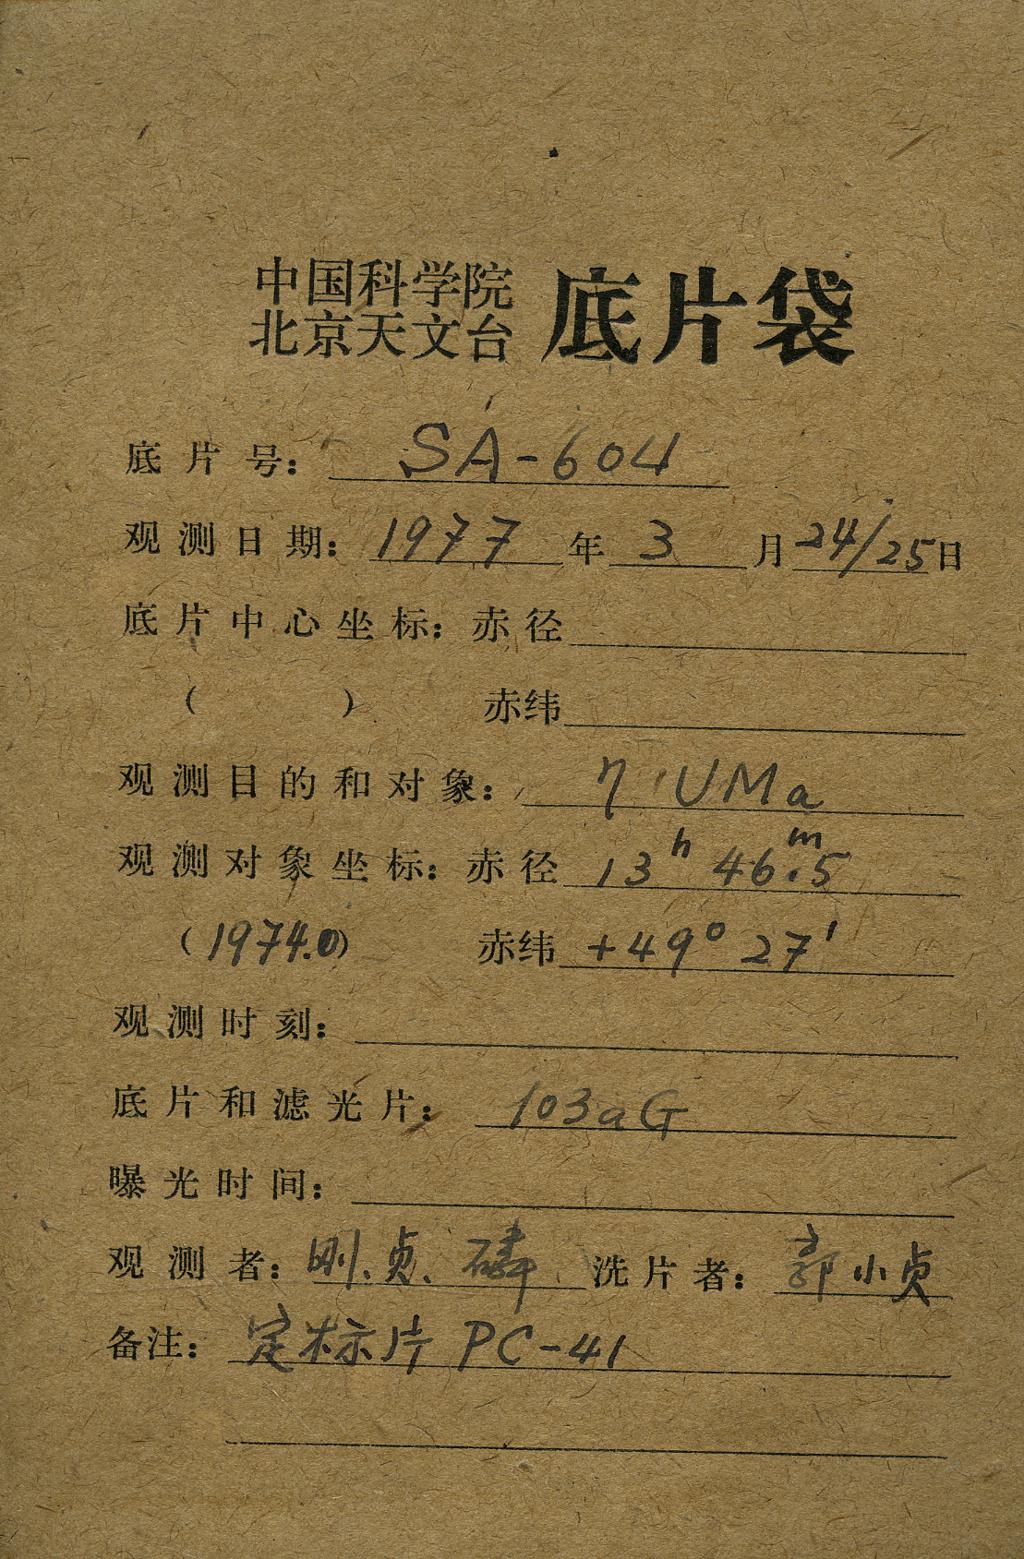 中国科学院
北京天文台 底片袋
底片号: SA-604
观测日期: 1977年3月24/25日
底片中心坐标: 赤径
( ) 赤纬
观测目的和对象: η UMa
观测对象坐标: 赤径 13h 46m.5
(1974.0) 赤纬 +49° 27'
观测时刻:
底片和滤光片: 103aG
曝光时间:
观测者: 刚、贞、磷 洗片者: 郭小贞
备注: 定标片 PC-41